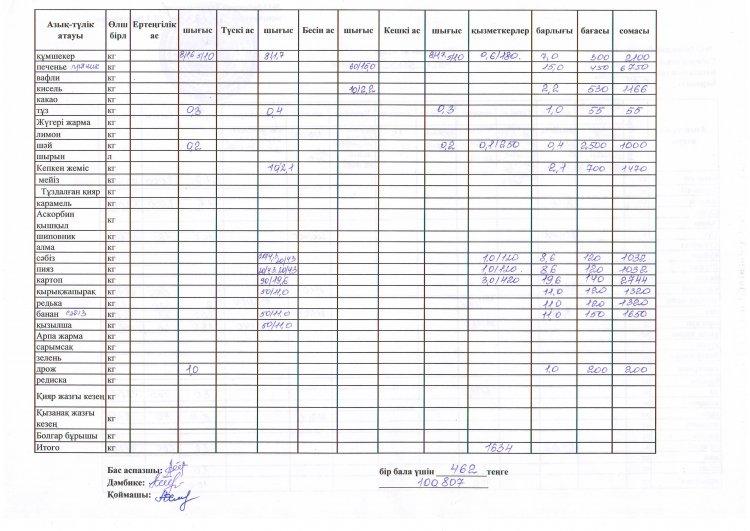 Азық-түлік атауы Өлш бірл Ертеңгілік ас шығыс Түскі ас шығыс Бесін ас шығыс Кешкі ас шығыс қызметкерлер барлығы бағасы сомасы
құмшекер кг 8/1,7 0,6/180 7,0 300 2100
печенье пряник кг 60/15,0 15,0 450 6750
вафли кг
кисель кг 10/2,2 2,2 530 1166
какао кг
тұз кг 0,3 0,4 0,3 1,0 55 55
Жүгері жарма кг
лимон кг
шәй кг 0,2 0,2 0,1/250 0,4 2500 1000
шырын л
Кепкен жеміс кг 10/2,1 2,1 700 1470
мейіз кг
Тұздалған қияр кг
карамель кг
Аскорбин қышқыл кг
шиповник кг
алма кг
сәбіз кг 20/4,3 20/4,3 1,0/120 8,6 120 1032
пияз кг 20/4,3 20/4,3 1,0/120 8,6 120 1032
картоп кг 90/19,6 3,0/420 19,6 140 2744
қырыққапырақ кг 50/11,0 11,0 120 1320
редька кг 11,0 120 1320
банан кг 50/11,0 11,0 150 1650
қызылша кг 50/11,0
Арпа жарма кг
сарымсақ кг
зелень кг
дрож кг 1,0 1,0 200 200
редиска кг
Қияр жазғы кезең кг
Қызанақ жазғы кезең кг
Болгар бұрышы кг
Итого кг 1634
Бас аспазшы: бір бала үшін 462 теңге
Дәмбике: 100807
Қоймашы: